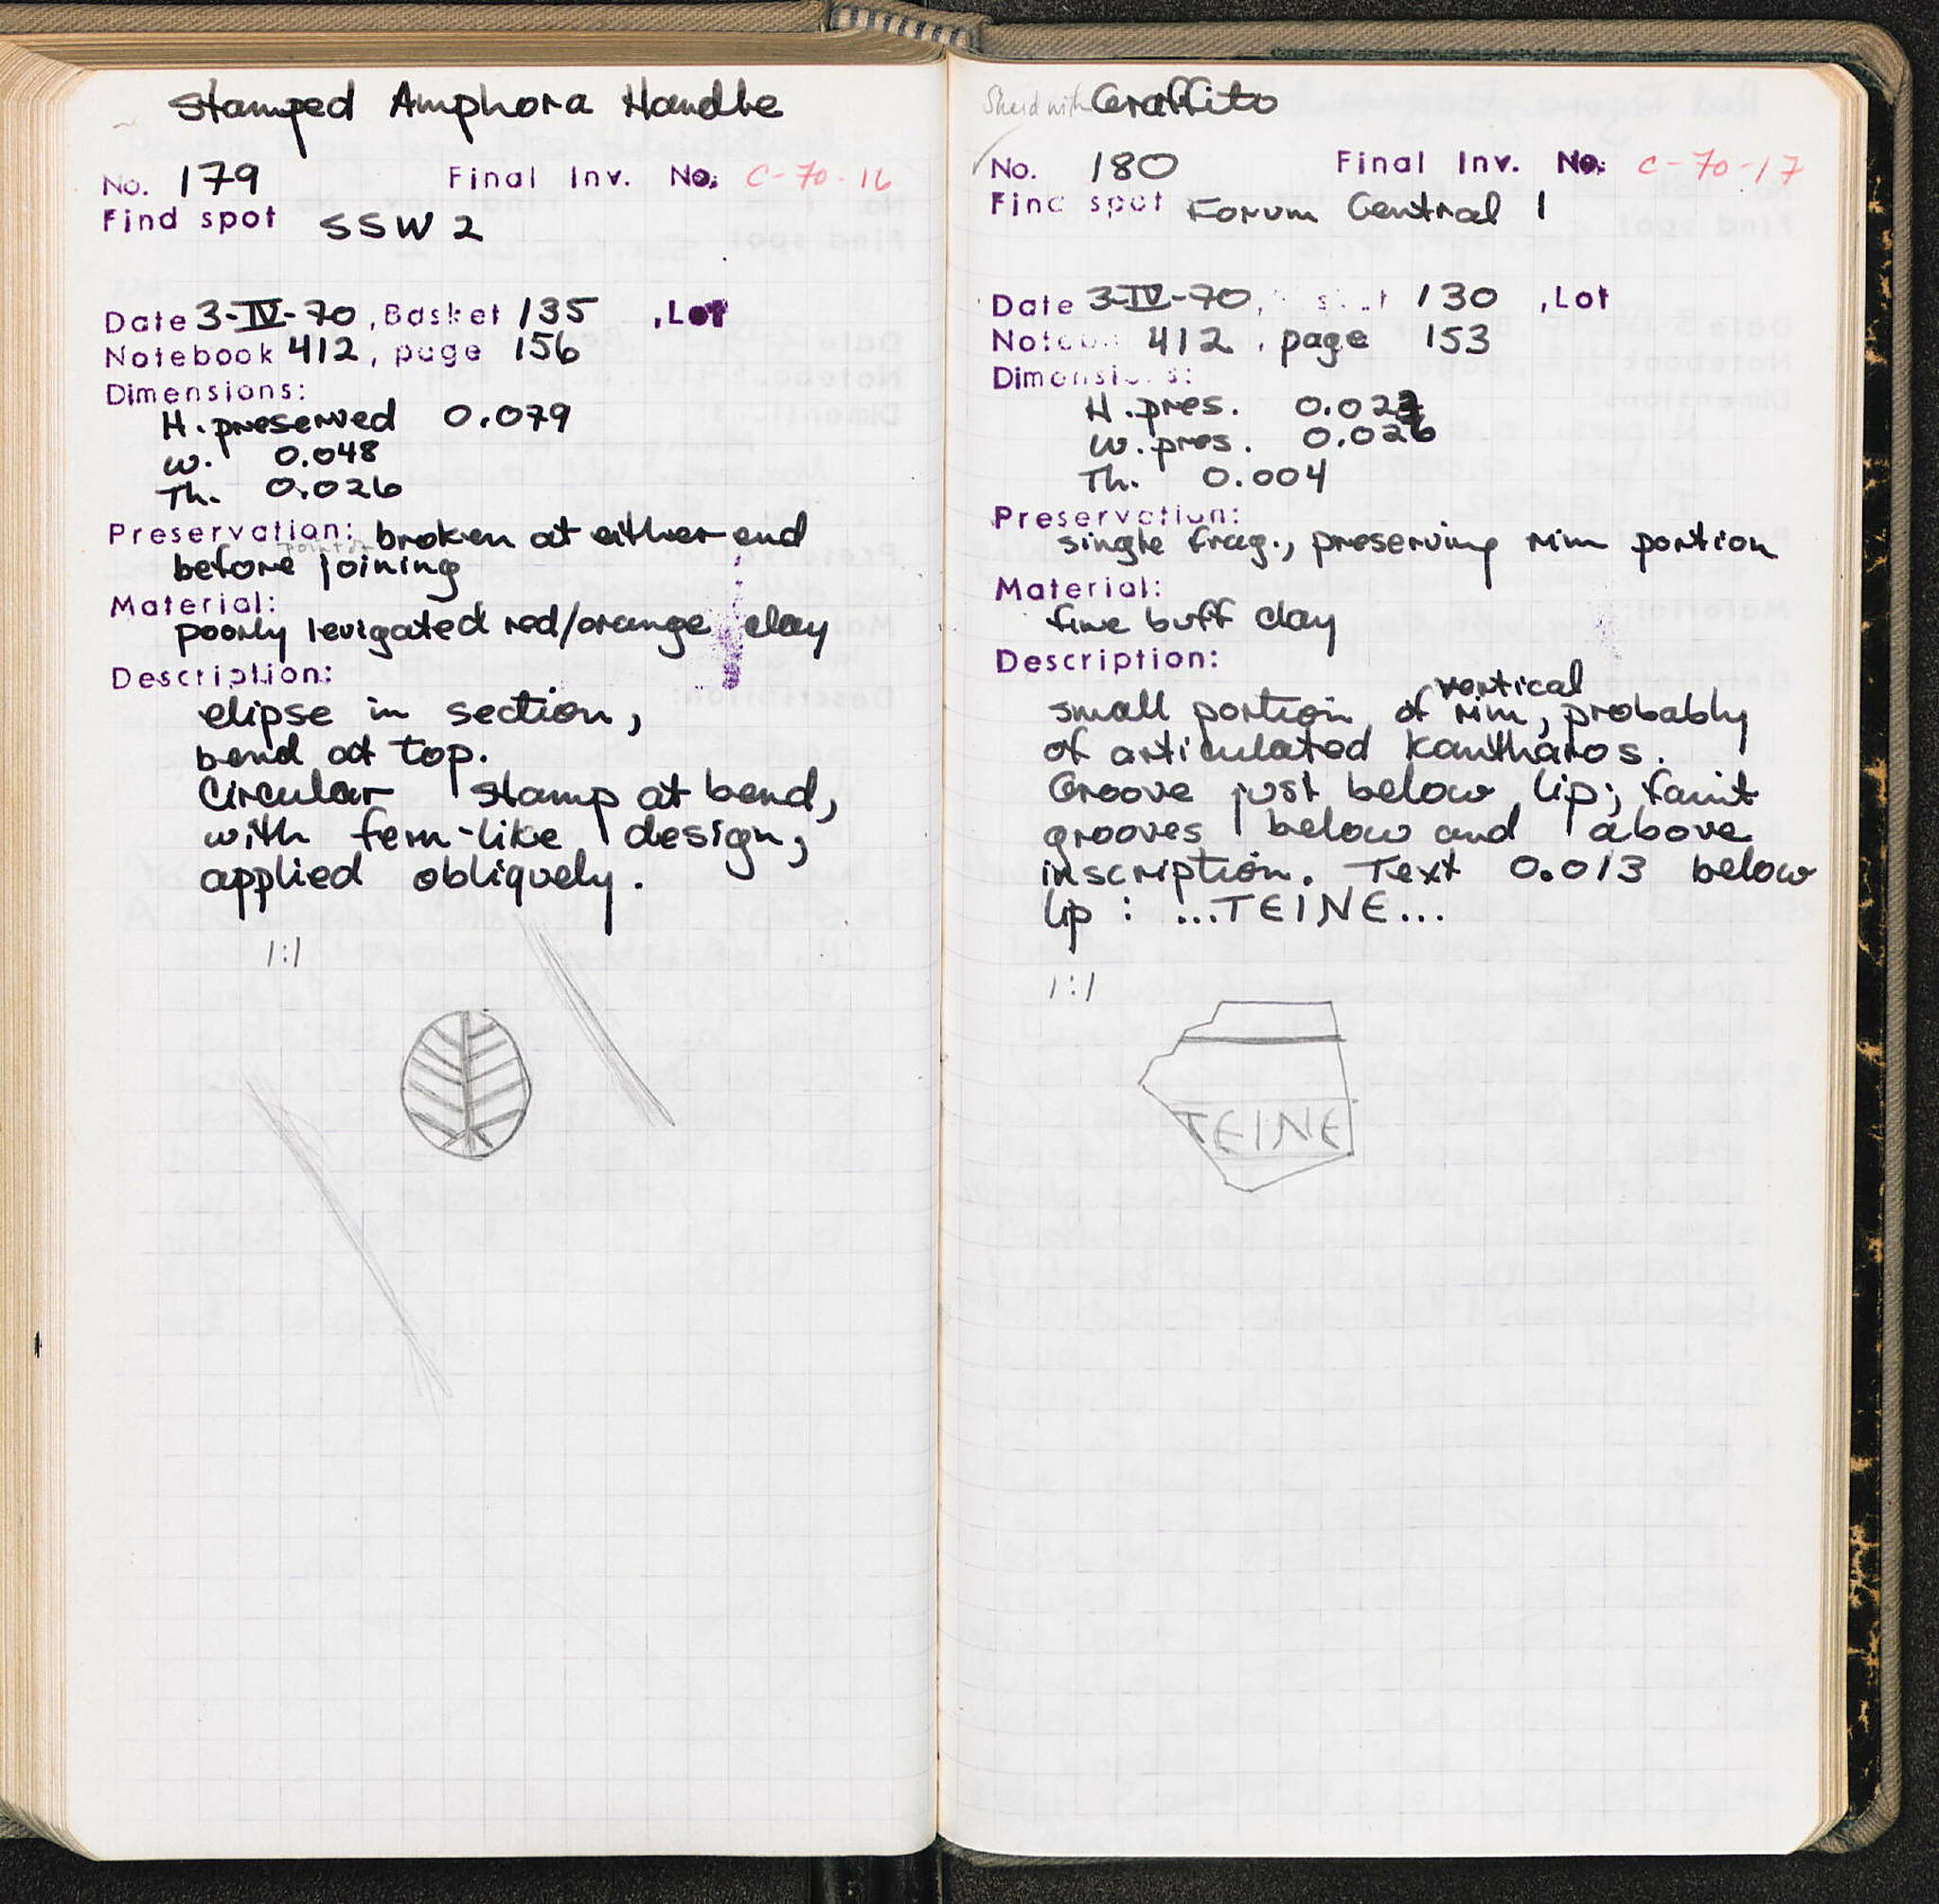 Stamped Amphora Handle
No. 179 Final Inv. No. C-70-16
Find spot SSW 2
Date 3-IV-70, Basket 135 , Lot
Notebook 412, page 156
Dimensions:
H. preserved 0.079
W. 0.048
Th. 0.026
Preservation: broken at either end
point of
before joining
Material:
poorly levigated red/orange clay
Description:
elipse in section,
bend at top.
Circular stamp at bend,
with fern-like design,
applied obliquely.
1:1
Sherd with Graffito
No. 180 Final Inv. No. C-70-17
Find spot Forum Central 1
Date 3-IV-70, 130 , Lot
Notebook 412, page 153
Dimensions:
H. pres.
W. pres. 0.026
Th. 0.004
Preservation:
single frag., preserving rim portion
Material:
fine buff clay
Description:
vertical
small portion of rim, probably
of articulated kantharos.
Groove just below lip; faint
grooves below and above
inscription. Text 0.013 below
lip : ...TEINE...
1:1
TEINE